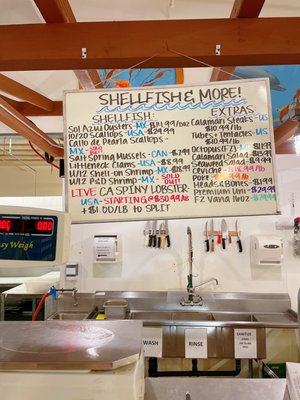 SHELLFISH & MORE!
SHELLFISH:
Sol Azul Oysters-MX-$14.99/DOZ
10/20 Scallops -USA-$29.99
Callo de Perla Scallops-
MX-
SOLD OUT
Salt Spring Mussels-CAN-$8.99
Littleneck Clams-USA-$8.99
U/12 Shell-on Shrimp-MX-
U/12 P&D Shrimp-MX-SOLD OUT
LIVE CA SPINY LOBSTER-
-USA-STARTING @ $30.99/LB
+$1.00/LB TO SPLIT
EXTRAS:
Calamari Steaks -US
$10.99/lb
Tubes + Tentacles -US
$10.99/lb
Octopus
Calamari Salad
Seaweed Salad
Ceviche
Poke
Heads & Bones
Premium Uni
FZ Vana 16oz
Easy Weigh
WASH
RINSE
SANITIZE